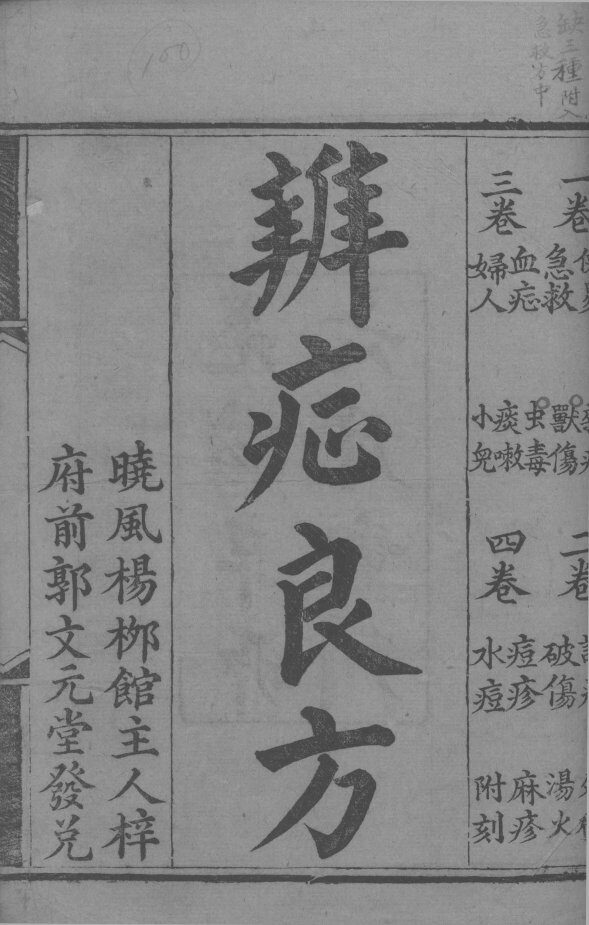 缺三種附入
急救方中
100
一卷
急救
獸傷
虫毒
二卷
破傷
湯火
三卷
血症
婦人
痰嗽
小兒
四卷
痘疹
水痘
麻疹
附刻
辨症良方
曉風楊柳館主人梓
府前郭文元堂發兌